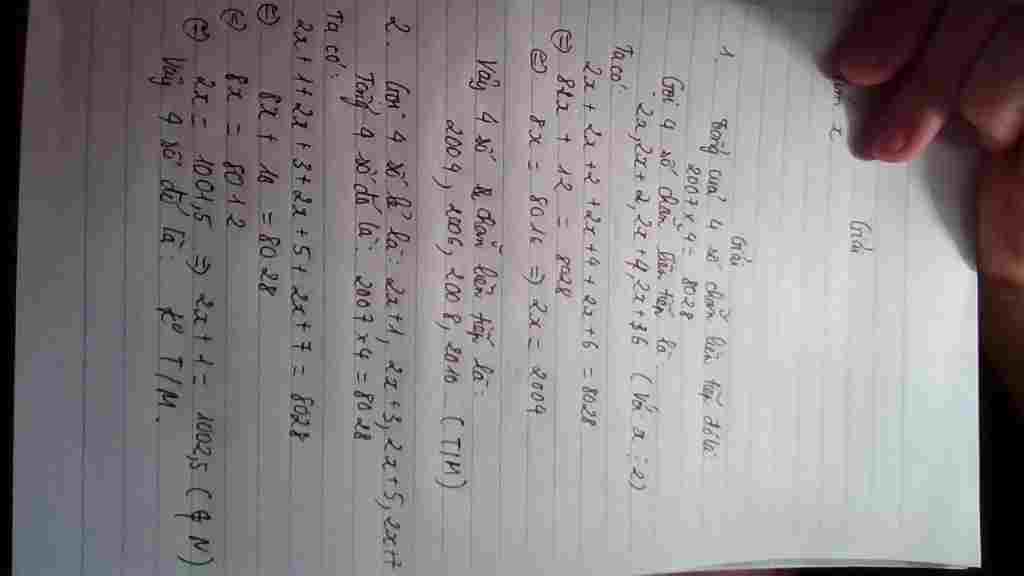 Giải
1. Giải
Tổng của 4 số chẵn liên tiếp đó là:
2007 x 4 = 8028
Gọi 4 số chẵn liên tiếp là:
2x, 2x+2, 2x+4, 2x+6 (Với x ⋮ 2)
Ta có:
2x + 2x+2 + 2x+4 + 2x+6 = 8028
⇔ 8x + 12 = 8028
⇔ 8x = 8016 ⇒ 2x = 2004
Vậy 4 số chẵn liên tiếp là:
2004, 2006, 2008, 2010 (T/M)
2. Gọi 4 số lẻ là: 2x+1, 2x+3, 2x+5, 2x+7
Tổng 4 số đó là: 2007 x 4 = 8028
Ta có:
2x + 1 + 2x + 3 + 2x + 5 + 2x + 7 = 8028
⇔ 8x + 16 = 8028
⇔ 8x = 8012
⇔ 2x = 1001,5 ⇒ 2x + 1 = 1002,5 (∉ N)
Vậy 4 số đó là: k° T/M.